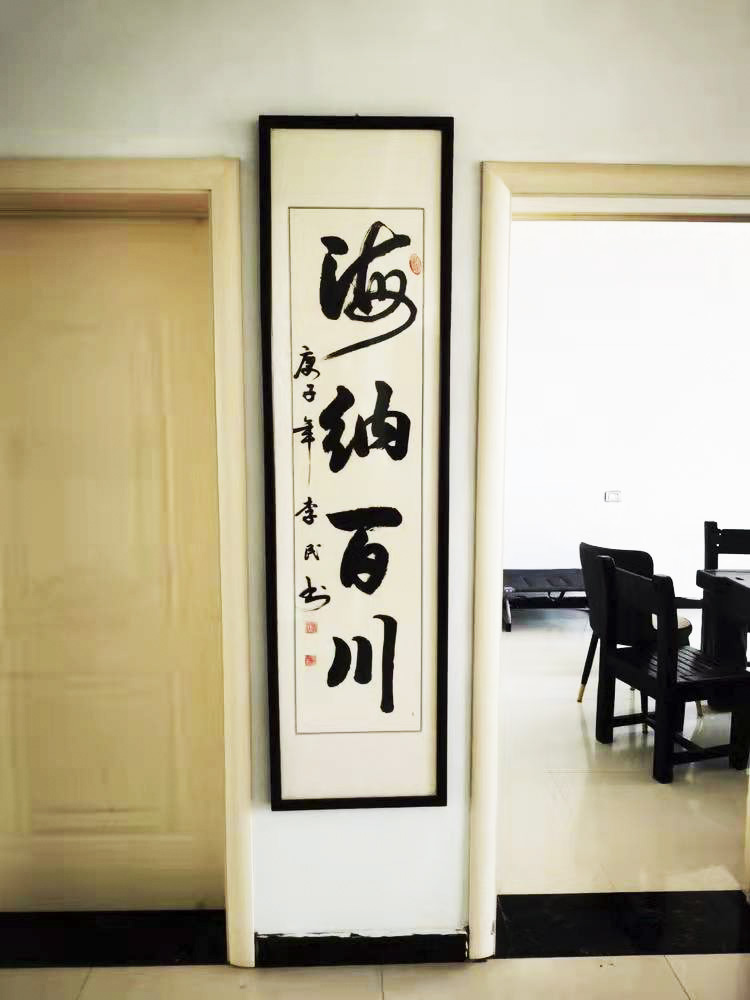 海纳百川
庚子年 李民书